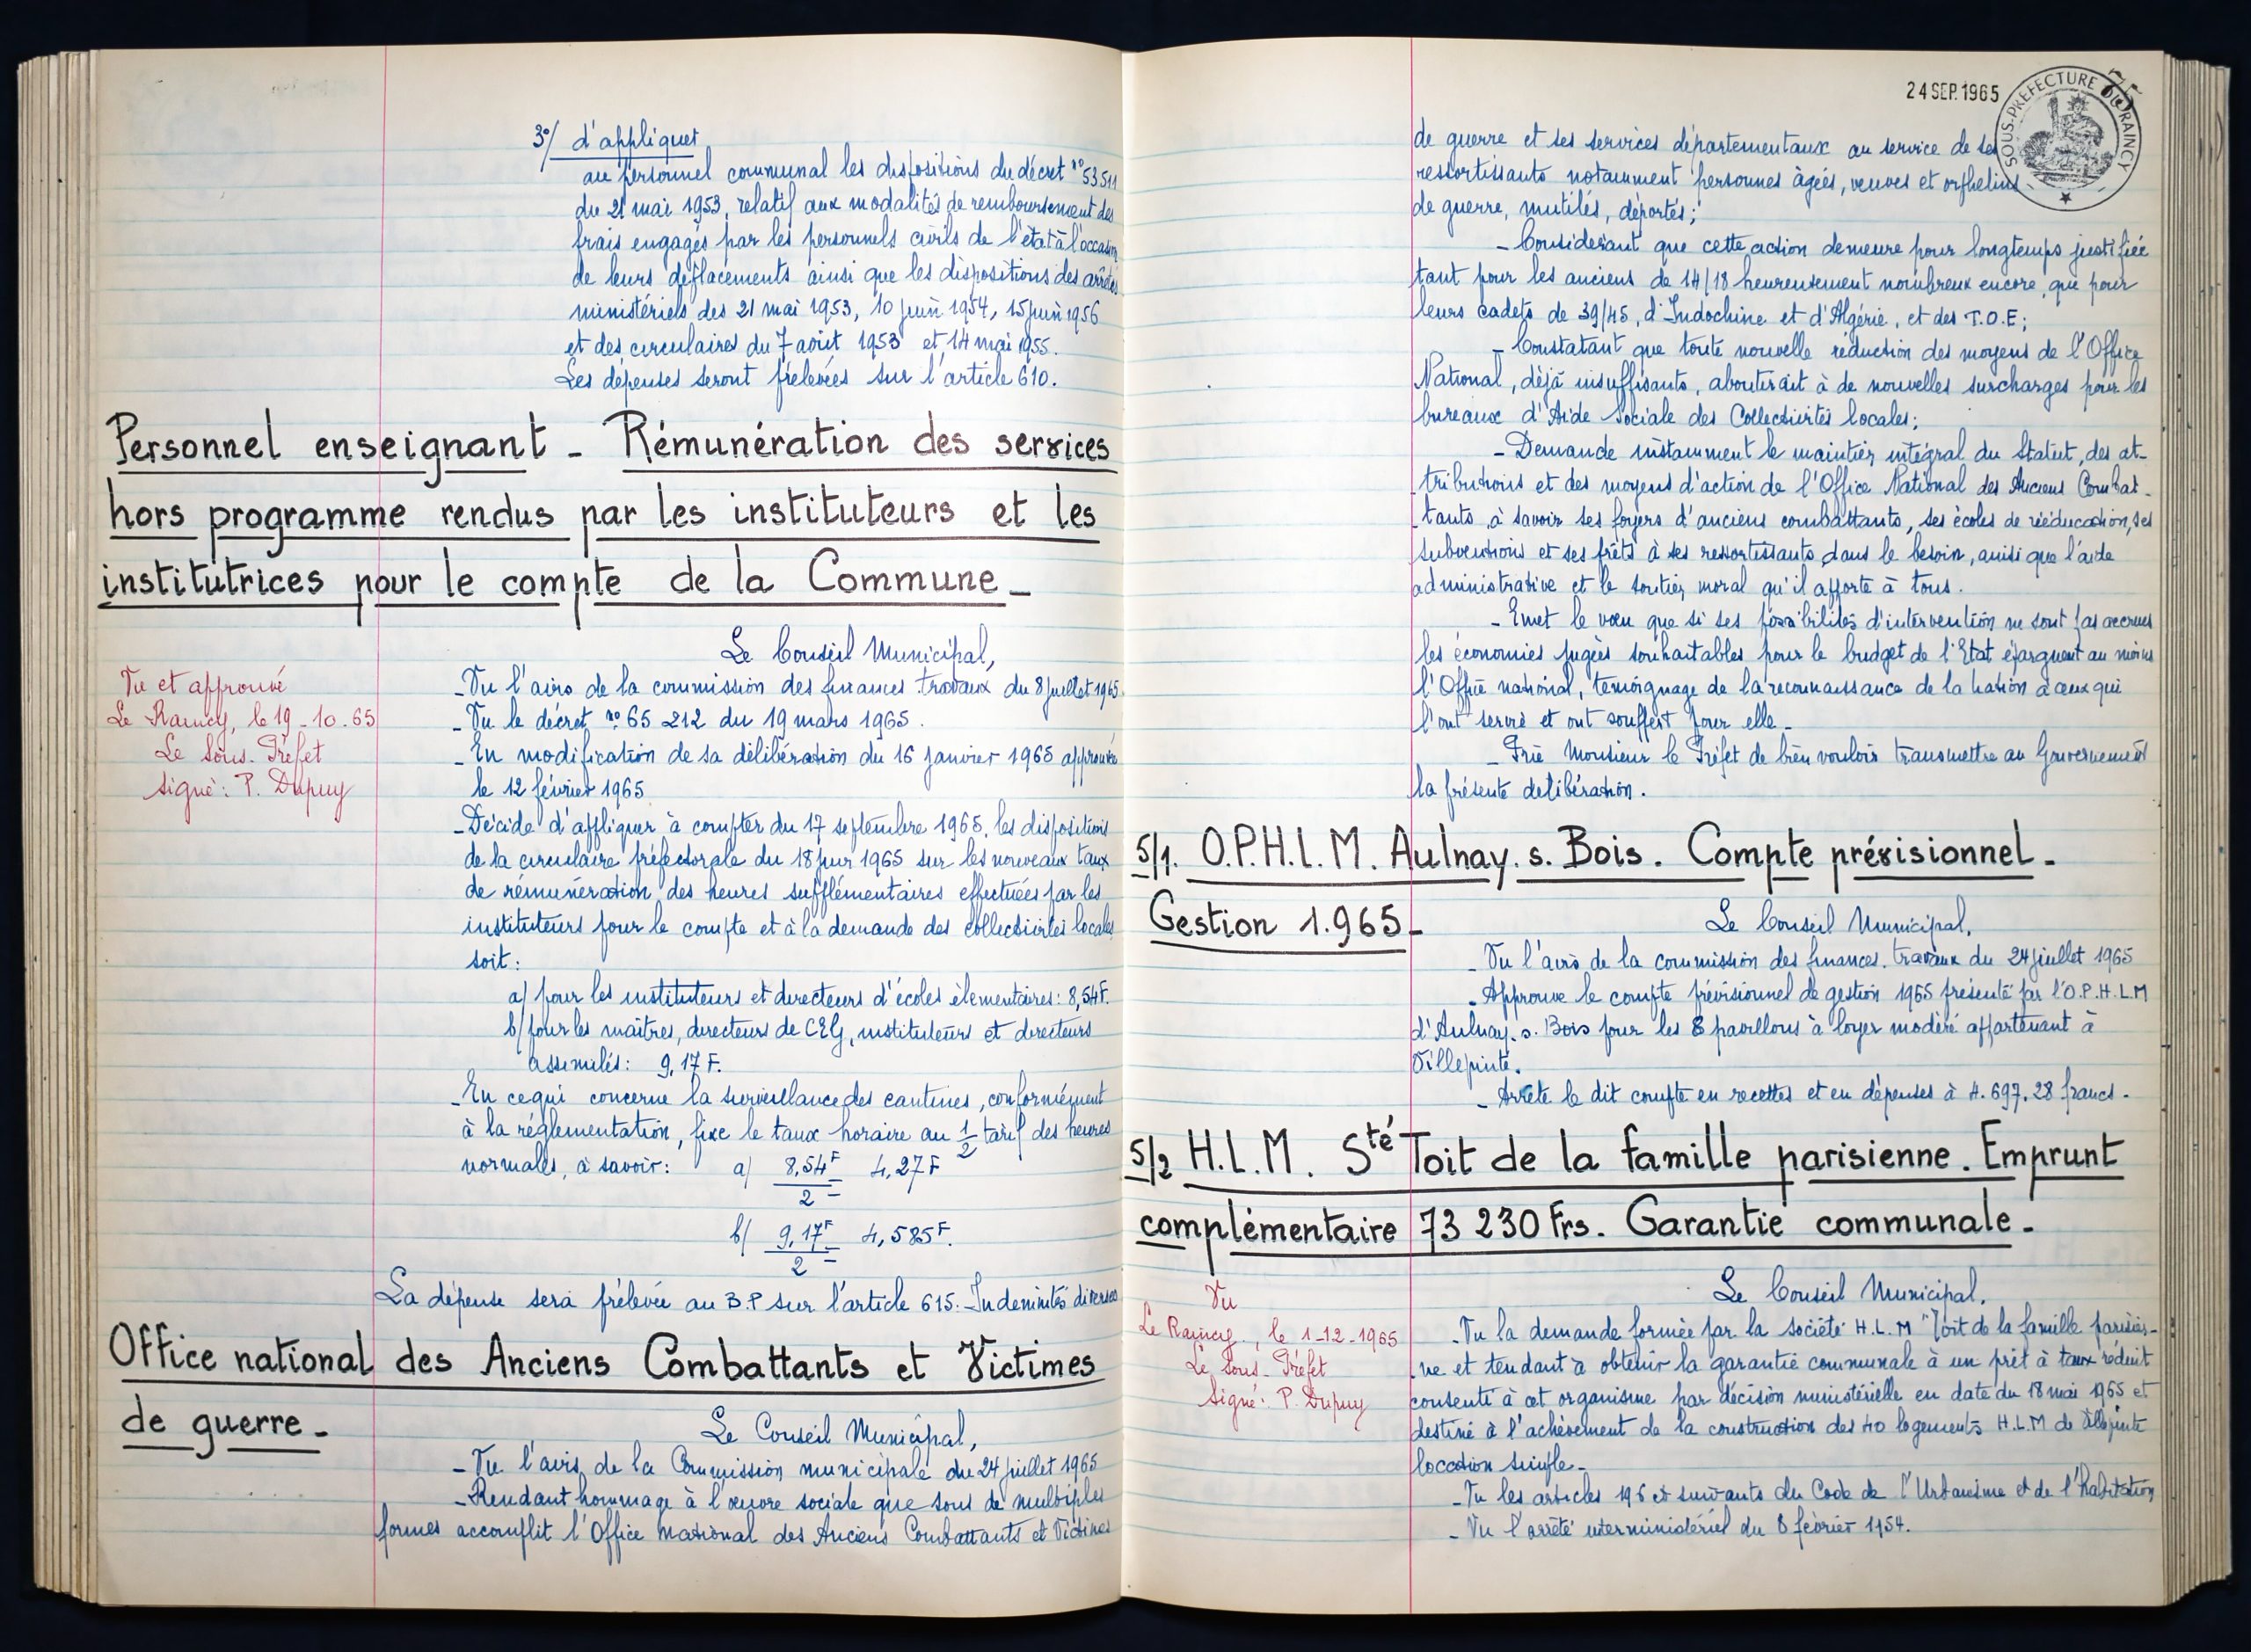 3°/ d'appliquer
au personnel communal les dispositions du décret n° 53 511
du 21 mai 1953, relatif aux modalités de remboursement des
frais engagés par les personnels civils de l'état à l'occasion
de leurs déplacements ainsi que les dispositions des arrêtés
ministériels des 21 mai 1953, 10 juin 1954, 15 juin 1956
et des circulaires du 7 août 1953 et 14 mai 1955.
Les dépenses seront prélevées sur l'article 610.
Personnel enseignant - Rémunération des services
hors programme rendus par les instituteurs et les
institutrices pour le compte de la Commune -
Le Conseil Municipal,
Vu et approuvé
Le Raincy, le 19-10.65
Le Sous-Préfet
signé: P. Dupuy
- Vu l'avis de la commission des finances travaux du 8 juillet 1965
- Vu le décret n° 65 212 du 19 mars 1965.
- En modification de sa délibération du 16 janvier 1965 approuvée
le 12 février 1965
- Décide d'appliquer à compter du 17 septembre 1965, les dispositions
de la circulaire préfectorale du 18 juin 1965 sur les nouveaux taux
de rémunération des heures supplémentaires effectuées par les
instituteurs pour le compte et à la demande des collectivités locales
soit:
a/ pour les instituteurs et directeurs d'écoles élementaires: 8,54F.
b/ pour les maîtres, directeurs de CEG, instituteurs et directeurs
assimilés: 9,17 F.
- En ce qui concerne la surveillance des cantines, conformément
à la réglementation, fixe le taux horaire au 1/2 tarif des heures
normales, à savoir: a/ 8,54F/2 = 4,27 F
b/ 9,17F/2 = 4,585F.
La dépense sera prélevée au B.P sur l'article 615. Indemnités diverses
Office national des Anciens Combattants et Victimes
de guerre -
Le Conseil Municipal,
- Vu l'avis de la Commission municipale du 24 juillet 1965
- Rendant hommage à l'œuvre sociale que sous de multiples
formes accomplit l'Office National des Anciens Combattants et Victimes
24 SEP. 1965
SOUS-PREFECTURE DU RAINCY
de guerre et ses services départementaux au service de ses
ressortissants notamment personnes âgées, veuves et orphelins
de guerre, mutilés, déportés;
- Considérant que cette action demeure pour longtemps justifiée
tant pour les anciens de 14/18 heureusement nombreux encore, que pour
leurs cadets de 39/45, d'Indochine et d'Algérie, et des T.O.E;
- Constatant que toute nouvelle réduction des moyens de l'Office
National, déjà insuffisants, aboutirait à de nouvelles surcharges pour les
bureaux d'Aide Sociale des Collectivités locales;
- Demande instamment le maintien intégral du Statut, des at-
tributions et des moyens d'action de l'Office National des Anciens Combat-
tants, à savoir ses foyers d'anciens combattants, ses écoles de rééducation, ses
subventions et ses prêts à ses ressortissants dans le besoin, ainsi que l'aide
administrative et le soutien moral qu'il apporte à tous.
- Emet le vœu que si ses possibilités d'intervention ne sont pas accrues
les économies jugées souhaitables pour le budget de l'Etat épargnent au moins
l'Office national, témoignage de la reconnaissance de la Nation à ceux qui
l'ont servie et ont souffert pour elle -
- Prie Monsieur le Préfet de bien vouloir transmettre au Gouvernement
la présente delibération.
5/1. O.P.H.L.M. Aulnay. s. Bois. Compte prévisionnel -
Gestion 1.965 -
Le Conseil Municipal,
- Vu l'avis de la commission des finances. travaux du 24 juillet 1965
- Approuve le compte prévisionnel de gestion 1965 présenté par l'O.P.H.L.M
d'Aulnay. s. Bois pour les 8 pavillons à loyer modéré appartenant à
Villepinte.
- Arrête le dit compte en recettes et en dépenses à 4.697,28 francs -
5/2 H.L.M. Sté Toit de la famille parisienne. Emprunt
complémentaire 73 230 Frs. Garantie communale -
Le Conseil Municipal,
Vu
Le Raincy, le 1-12-1965
Le Sous-Préfet
signé: P. Dupuy
- Vu la demande formée par la société H.L.M "Toit de la famille parisien-
ne et tendant à obtenir la garantie communale à un prêt à taux réduit
consenti à cet organisme par décision ministérielle en date du 18 mai 1965 et
destiné à l'achèvement de la construction des 40 logements H.L.M de Villepinte
location simple -
- Vu les articles 196 et suivants du Code de l'Urbanisme et de l'habitation
- Vu l'arrêté interministériel du 8 février 1954.